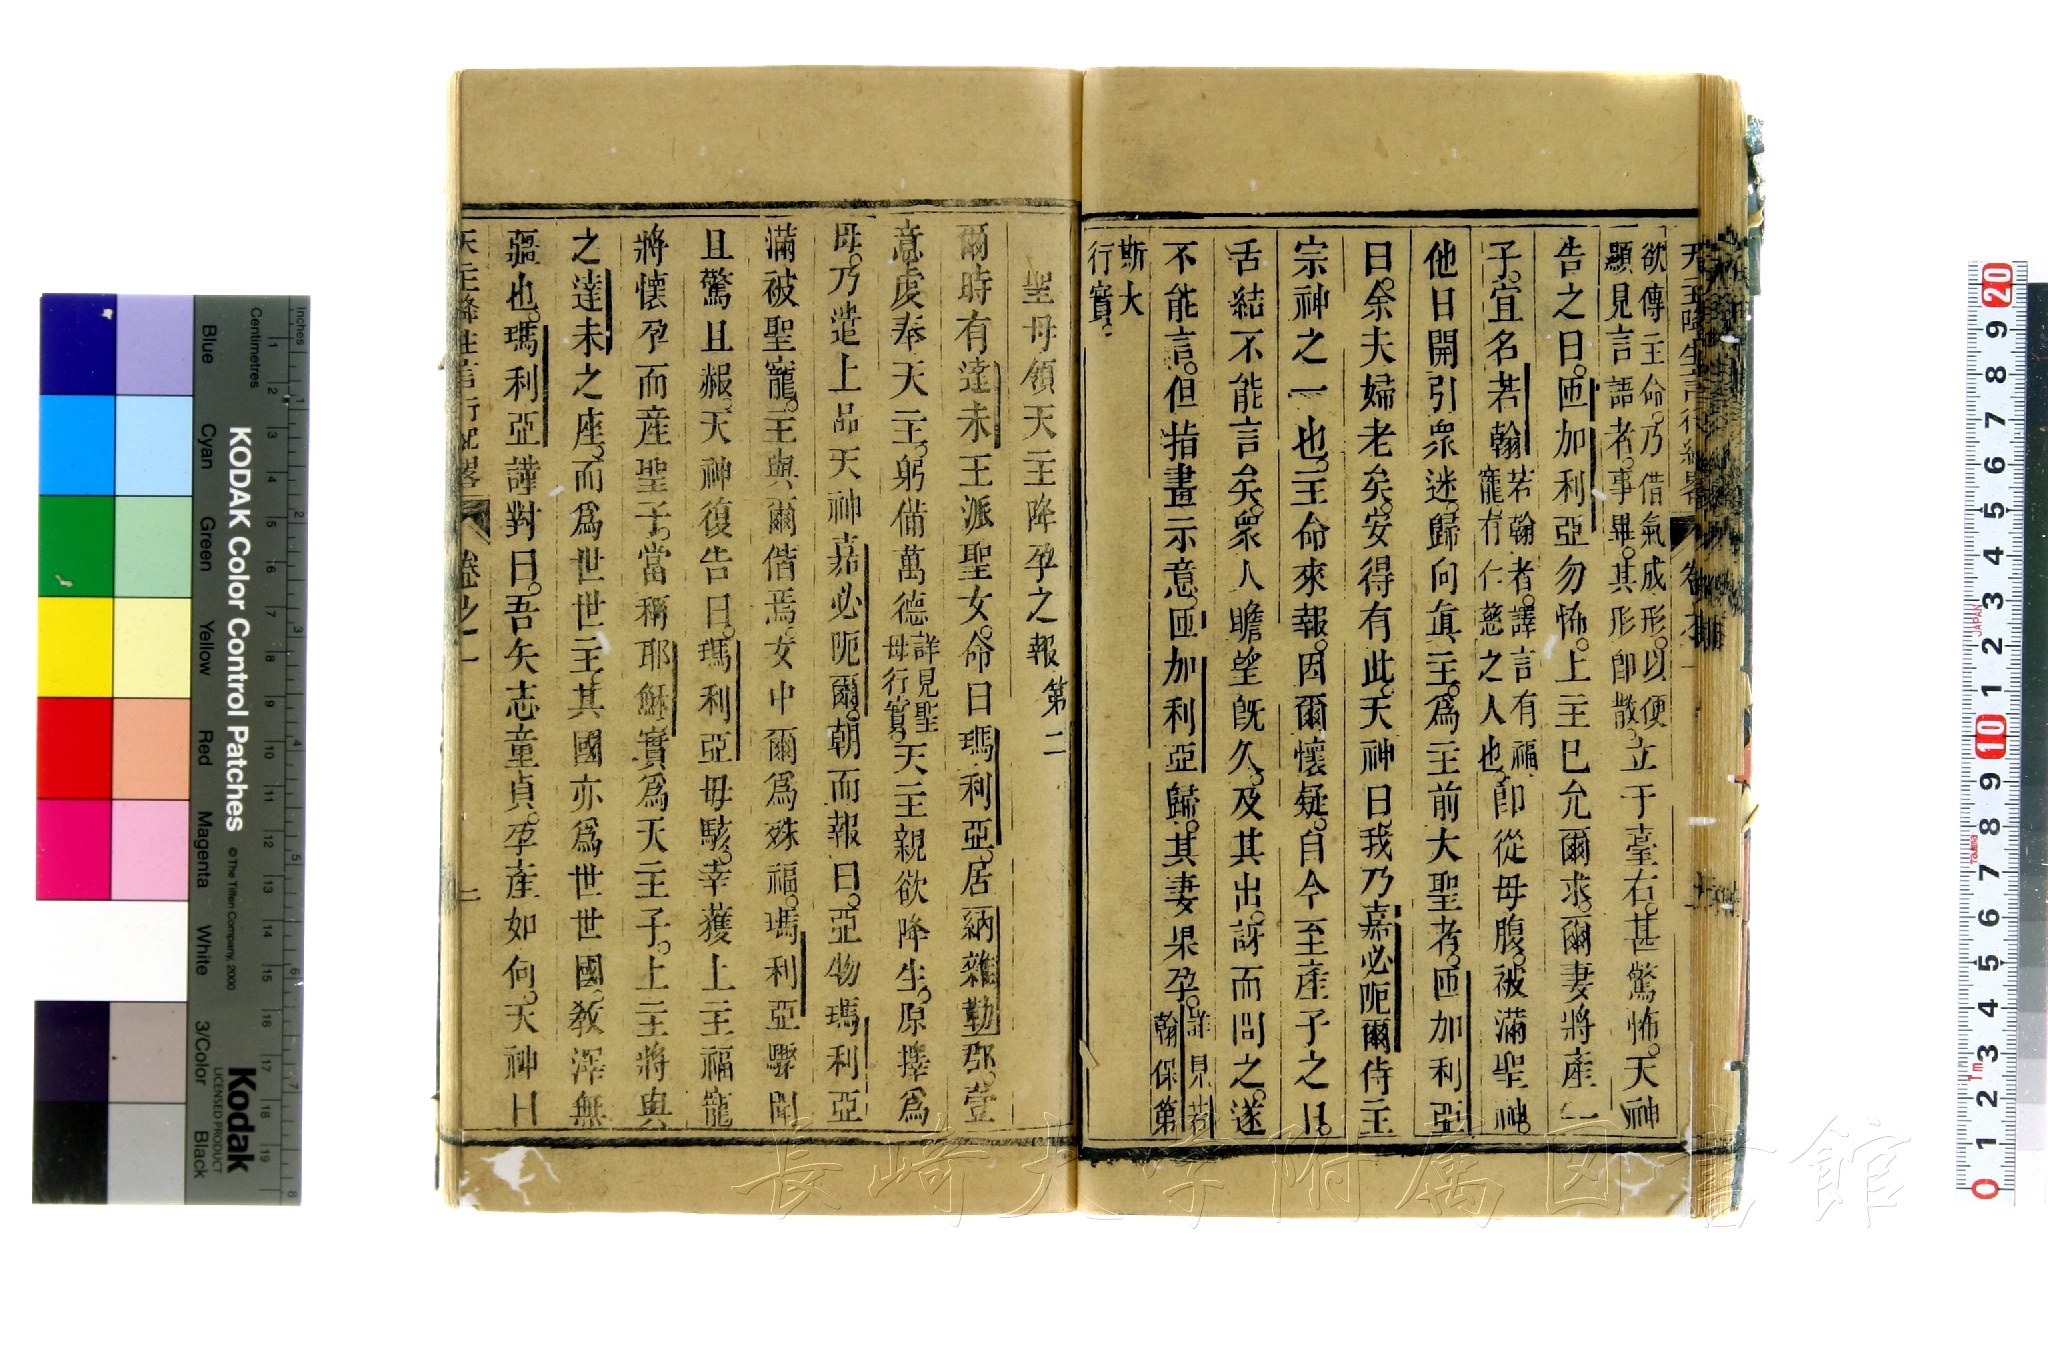 天主降生言行紀畧
欲傳主命。乃借氣成形。以便
顯見言語者。事畢。其形卽散。
立于臺右。甚驚怖。天神
告之曰。匝加利亞勿怖。上主已允爾求。爾妻將產一
子。宜名若翰
若翰者。譯言有福
寵。有仁慈之人也。
卽從母腹。被滿聖神。
他日開引衆迷。歸向眞主。爲主前大聖者。匝加利亞
曰。余夫婦老矣。安得有此。天神曰。我乃嘉必阨爾侍主
宗神之一也。主命來報。因爾懷疑。自今至產子之日。
舌結不能言矣。衆人瞻望旣久。及其出。訝而問之。遂
不能言。但指畫示意。匝加利亞歸。其妻果孕。
詳見若
翰保第
斯大
行實。
聖母領天主降孕之報 第二
爾時有達未王派聖女。命曰瑪利亞。居納雜勒郡。壹
意虔奉天主。躬備萬德
詳見聖
母行實。
天主親欲降生。原擇爲
母。乃遣上品天神嘉必阨爾。朝而報曰。亞物瑪利亞
滿被聖寵。主與爾偕焉。女中爾爲殊福。瑪利亞驟聞
且驚且赧。天神復告曰。瑪利亞毋駭。幸獲上主福寵
將懷孕而產聖子。當稱耶穌。實爲天主子。上主將與
之達未之座。而爲世世主。其國亦爲世世國。教澤無
疆也。瑪利亞謹對曰。吾矢志童貞。孕產如何。天神曰
天主降生言行紀畧 卷之一 二
長崎大学附属図書館
KODAK Color Control Patches
© The Tiffen Company, 2000
Kodak
LICENSED PRODUCT
Inches
Centimetres
Blue
Cyan
Green
Yellow
Red
Magenta
White
3/Color
Black
JAPAN